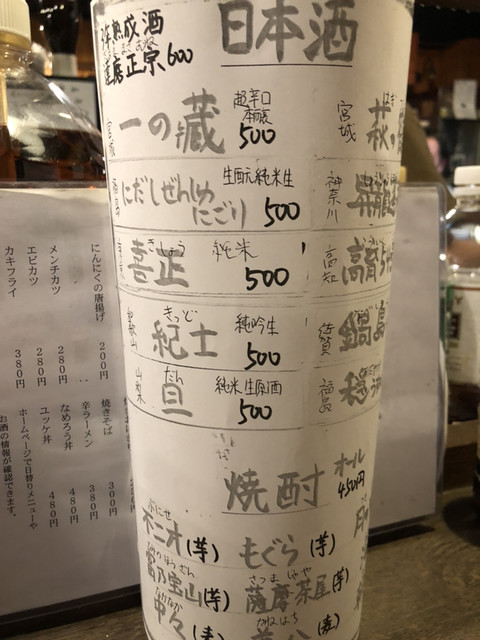 日本酒
年熟成酒
薩摩正宗 600
宮城
一の蔵
超辛口
本醸
500
にだしぜんしゅ
にごり
生酛純米生
500
喜正
きしょう
純米
500
和歌山
紀士
きっど
純吟生
500
山梨
旦
だん
純米生原酒
500
宮城
萩
はぎ
神奈川
昇龍
高知
佐賀
鍋島
福島
穏
焼酎
オール
450円
不二才(芋)
ぶにせ
もぐら(芋)
富乃宝山(芋)
薩摩茶屋(芋)
さつまぢゃや
中々
なかなか
(麦)
かねはち
(麦)
にんにくの唐揚げ 200円
メンチカツ 280円
エビカツ 280円
カキフライ 380円
焼きそば 300円
辛ラーメン 380円
なめろう丼 480円
ユッケ丼 480円
ホームページで日替りメニューや
お酒の情報が確認できます。